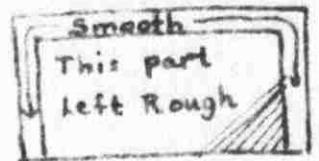 Smooth
This part
Left Rough